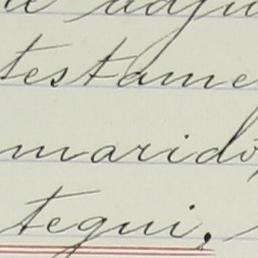 adju
testame
marido,
tegui.